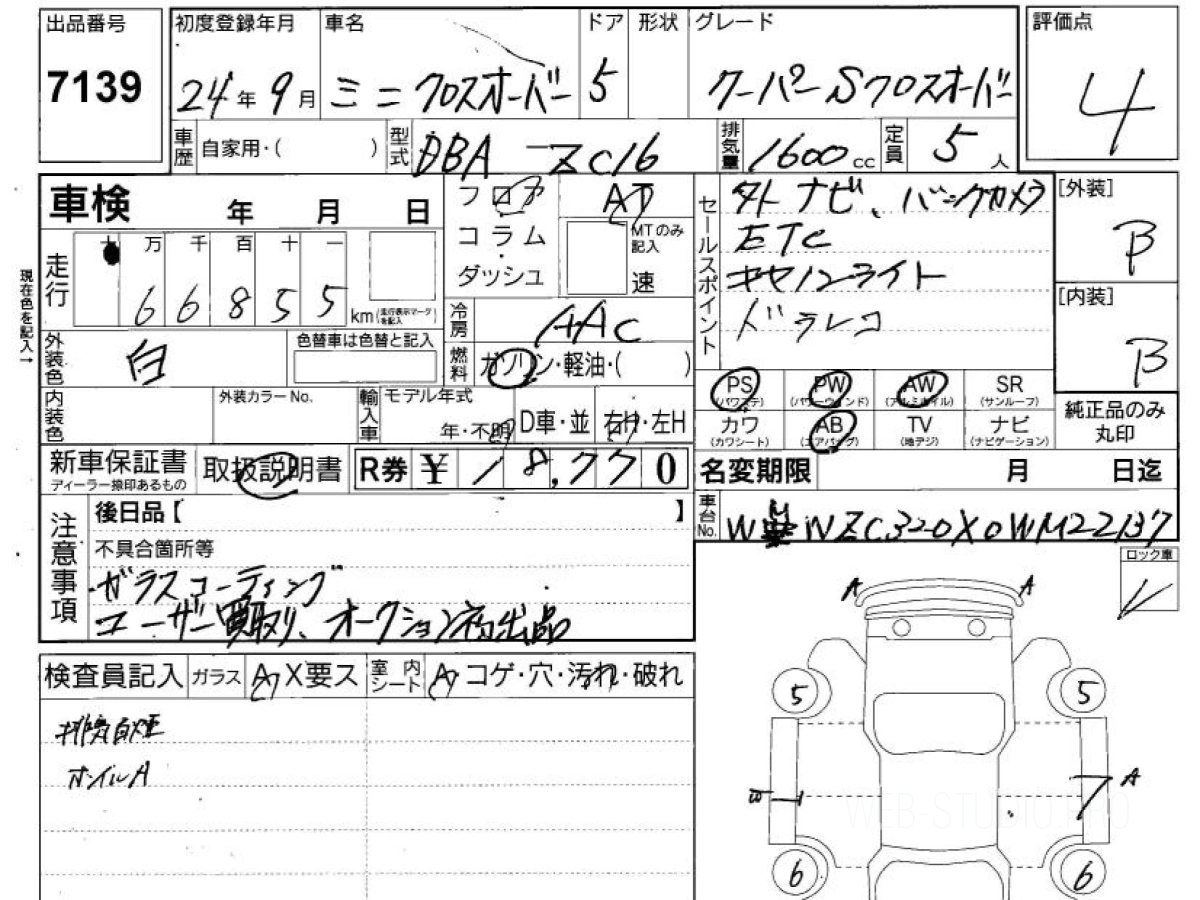 出品番号
7139
初度登録年月
24年9月
車名
ミニクロスオーバー
ドア
5
形状
グレード
クーパーSクロスオーバー
評価点
4
車歴
自家用・( )
型式
DBA-ZC16
排気量
1600cc
定員
5人
車検
年 月 日
フロア
コラム
ダッシュ
AT
MTのみ記入
速
セールスポイント
外ナビ、バックカメラ
ETC
キセノンライト
ドラレコ
[外装]
B
[内装]
B
現在色を記入→
走行
十 万 千 百 十 一
6 6 8 5 5
km(走行表示マークを記入)
冷房
AAC
外装色
白
色替車は色替と記入
燃料
ガソリン・軽油・( )
内装色
外装カラーNo.
輸入車
モデル年式
年・不明
D車・並
右H・左H
PS
(パワステ)
PW
(パワーウインド)
AW
(アルミホイル)
SR
(サンルーフ)
カワ
(カワシート)
AB
(エアバッグ)
TV
(地デジ)
ナビ
(ナビゲーション)
純正品のみ
丸印
新車保証書
ディーラー捺印あるもの
取扱説明書
R券 ¥ 18,770
名変期限
月 日迄
車台No.
WNZC320X0WM22137
注意事項
後日品【 】
不具合箇所等
ガラスコーティング
ユーザー買取り、オークション初出品
ロック車
検査員記入
ガラス
A X要ス
室内シート
A コゲ・穴・汚れ・破れ
排気白煙
ホイルA
A
A
5
5
A
6
6
WEB-STUDIO.PRO